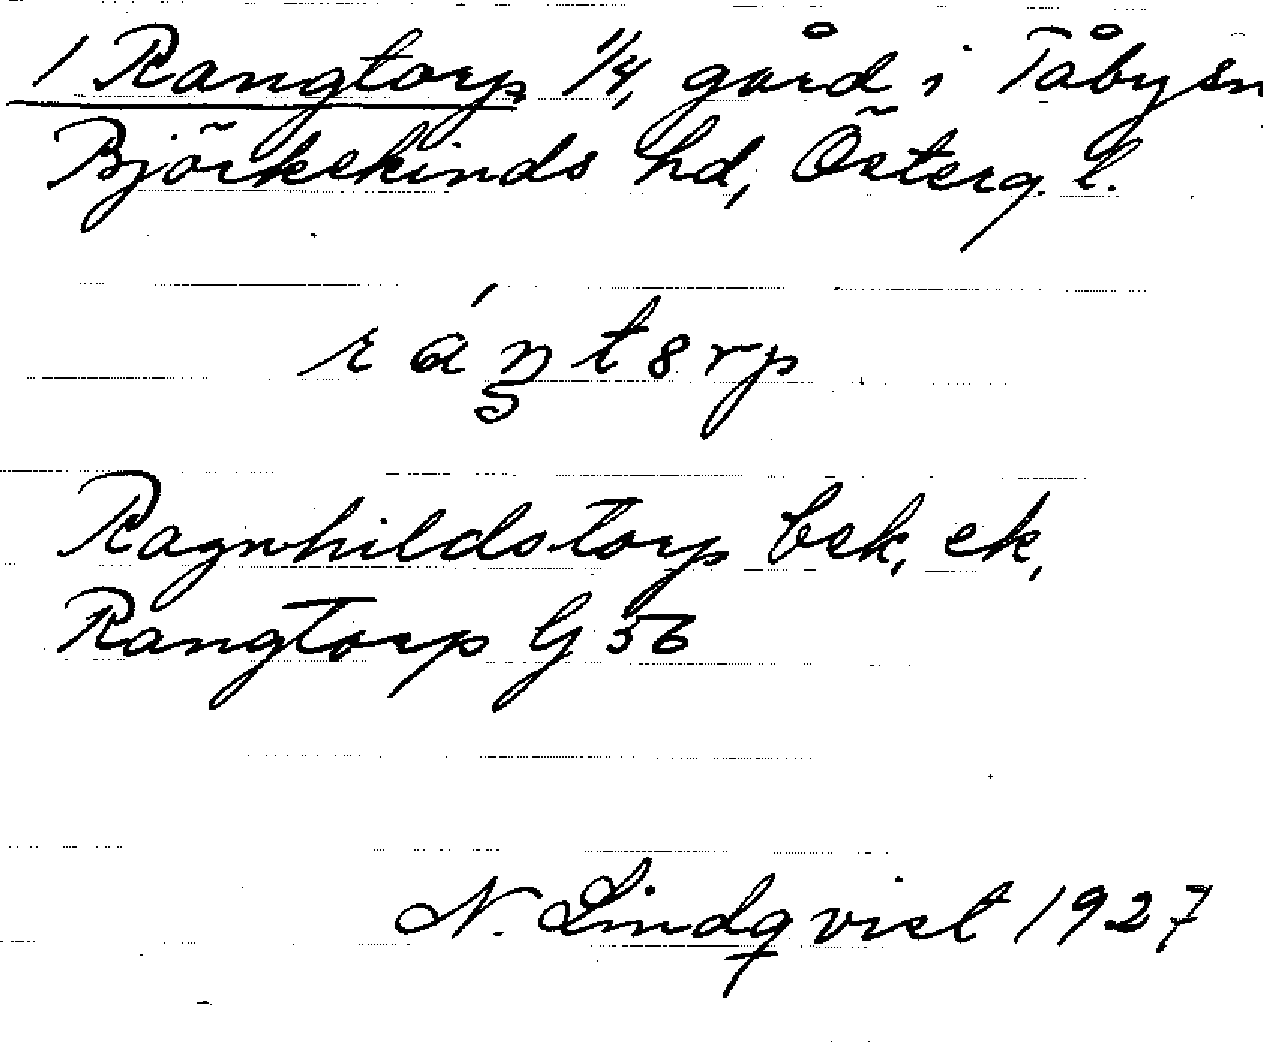 1 Rangtorp 1/4, gård i Tåby sn
Björkekinds hd, Österg. l.
ráŋt8rp
Ragnhildstorp bek, ek,
Rangtorp G 56
N. Lindqvist 1927